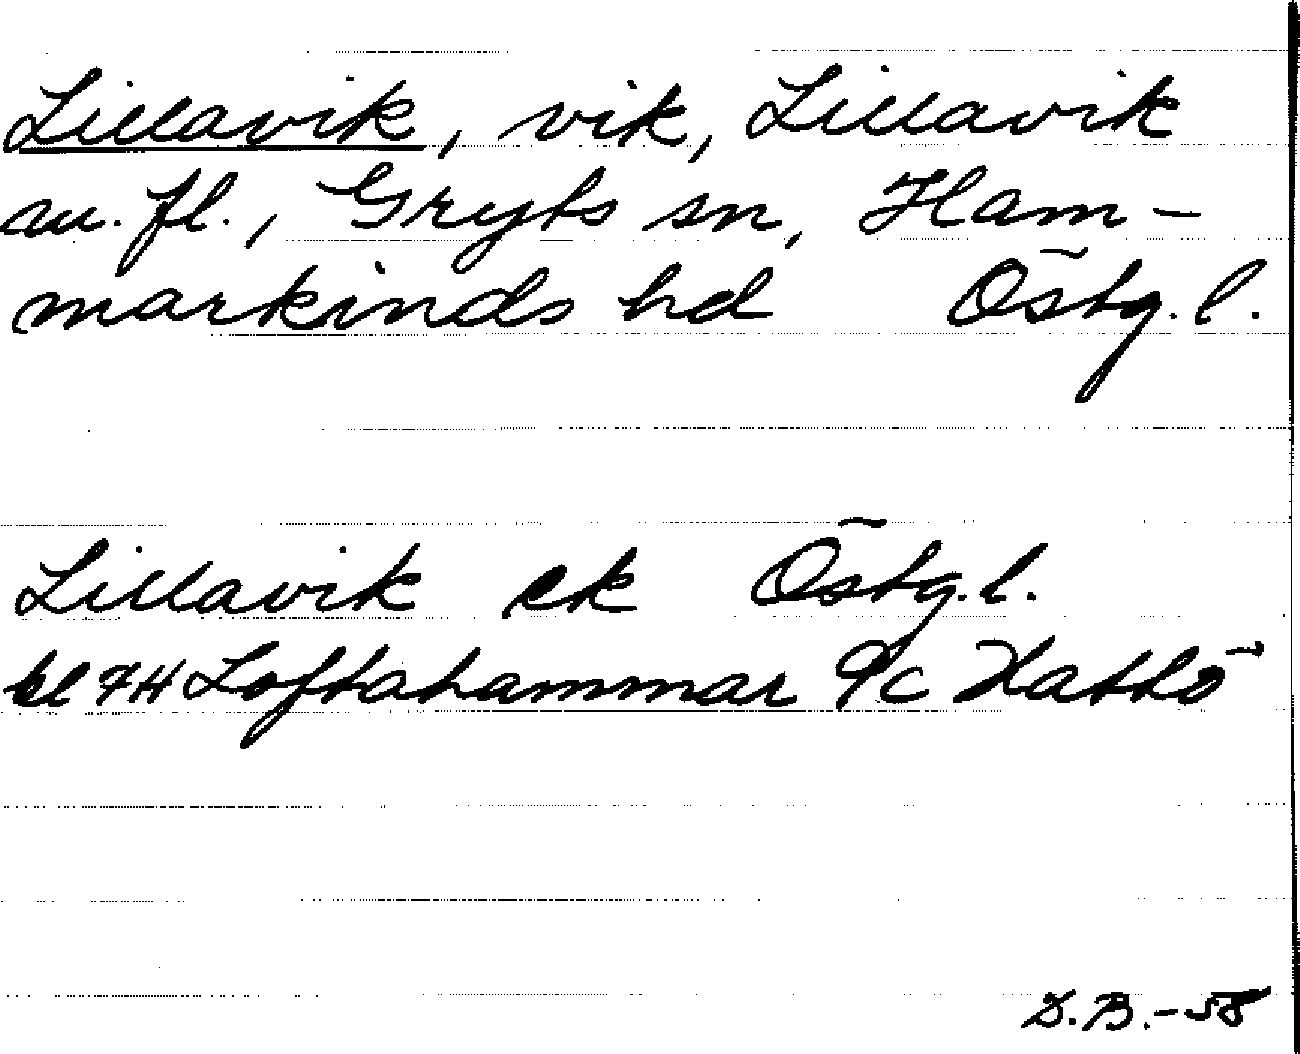 Lillavik, vik, Lillavik
au. fl., Gryts sn, Ham-
markinds hd Östg. l.
Lillavik ek Östg. l.
bl 7H Loftahammar 9c Kattö
D.B.-58